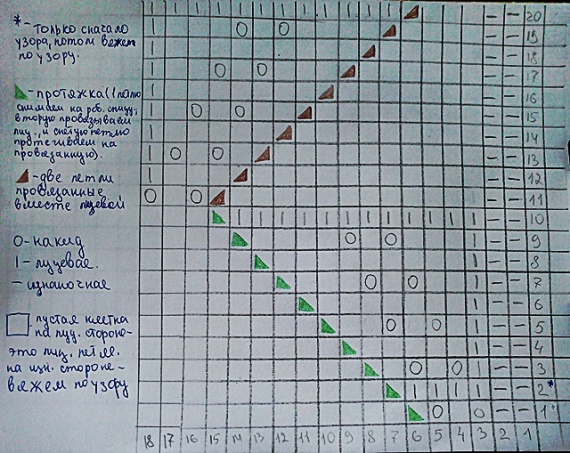 *-только сначало
узора, потом вяжет
по узору.
-протяжка (1 петлю
снимаем на раб. спицу,
вторую провязываем
лиц., и снятую петлю
протягиваем на
провязанную).
-две петли
провязанные
вместе лицевой
О-накид
I-лицевая.
- изнаночная
пустая клетка
на лиц. стороне-
это лиц. петля.
на изн. стороне-
вяжем по узору
20
19
18
17
16
15
14
13
12
11
10
9
8
7
6
5
4
3
2*
1*
18 17 16 15 14 13 12 11 10 9 8 7 6 5 4 3 2 1